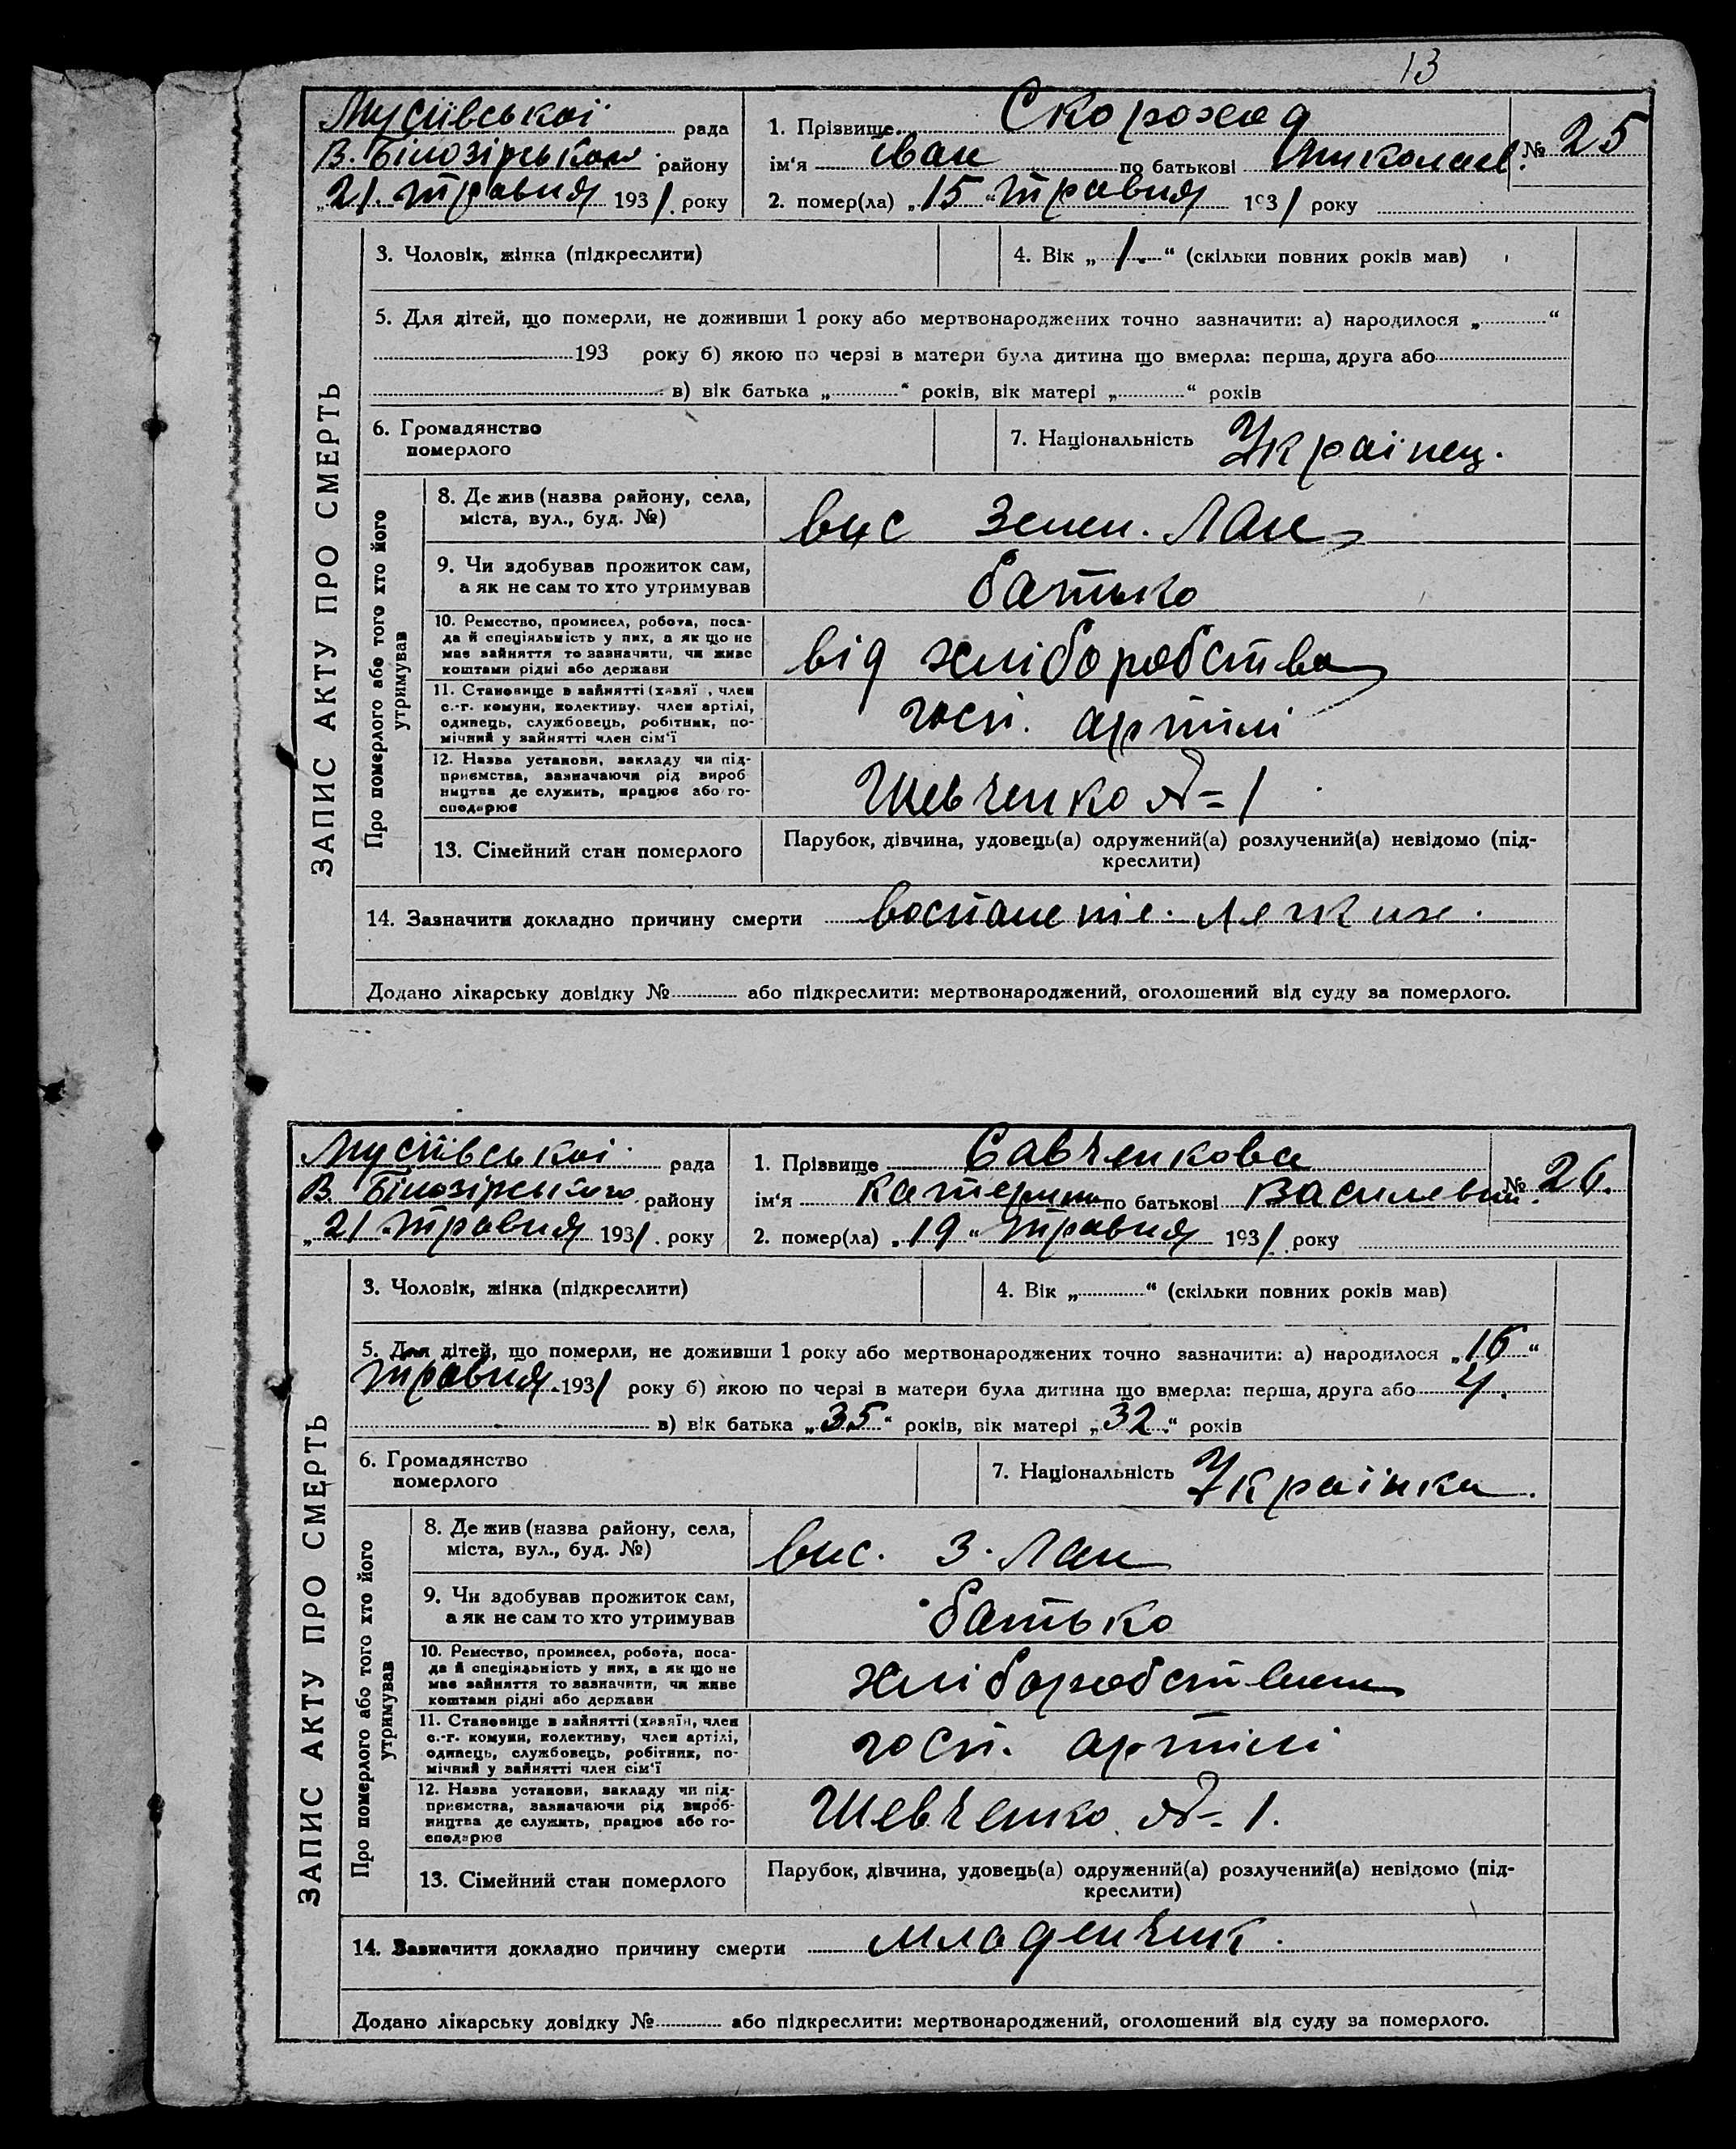 13
Мусіївської рада
В. Білозірського району
„21„ травня 1931. року
1. Прізвище Скороход
№ 25
ім‘я Іван по батькові Миколаєв.
2. помер(ла) „15“ травня 1931 року
ЗАПИС АКТУ ПРО СМЕРТЬ
3. Чоловік, жінка (підкреслити)
4. Вік „1.“ (скільки повних років мав)
5. Для дітей, що померли, не доживши 1 року або мертвонароджених точно зазначити: а) народилося „ “
193 року б) якою по черзі в матери була дитина що вмерла: перша, друга або
в) вік батька „ “ років, вік матері „ “ років
6. Громадянство
померлого
7. Національність Українец.
Про померлого або того хто його
утримував
8. Де жив (назва району, села,
міста, вул., буд. №)
вис Зелен. Лан
9. Чи здобував прожиток сам,
а як не сам то хто утримував
батько
10. Ремество, промисел, робота, поса-
да й спеціяльність у них, а як що не
має зайняття то зазначити, чи живе
коштами рідні або держави
від хліборобства
11. Становище в зайнятті (хазяї , член
с.-г. комуни, колективу, член артілі,
одинець, службовець, робітник, по-
мічний у зайнятті член сім‘ї
госп. артілі
12. Назва установи, закладу чи під-
приємства, зазначаючи рід вироб
ництва де служить, працює або го-
сподарює
Шевченко №1
13. Сімейний стан померлого
Парубок, дівчина, удовець(а) одружений(а) розлучений(а) невідомо (під-
креслити)
14. Зазначити докладно причину смерти воспаленіе. легких.
Додано лікарську довідку № або підкреслити: мертвонароджений, оголошений від суду за померлого.
Мусіївської рада
В. Білозірського району
„21“ травня 1931. року
1. Прізвище Савченкова
№ 26.
ім‘я Катерина по батькові Василевн.
2. помер(ла) „19“ травня 1931. року
ЗАПИС АКТУ ПРО СМЕРТЬ
3. Чоловік, жінка (підкреслити)
4. Вік „ “ (скільки повних років мав)
5. Для дітей, що померли, не доживши 1 року або мертвонароджених точно зазначити: а) народилося „16“
травня 1931 року б) якою по черзі в матери була дитина що вмерла: перша, друга або 4.
в) вік батька „35“ років, вік матері „32“ років
6. Громадянство
померлого
7. Національність Українка.
Про померлого або того хто його
утримував
8. Де жив (назва району, села,
міста, вул., буд. №)
вис. З. Лан
9. Чи здобував прожиток сам,
а як не сам то хто утримував
батько
10. Ремество, промисел, робота, поса-
да й спеціяльність у них, а як що не
має зайняття то зазначити, чи живе
коштами рідні або держави
11. Становище в зайнятті (хазяїн, член
с.-г. комуни, колективу, член артілі,
одинець, службовець, робітник, по-
мічний у зайнятті член сім‘ї
госп. артілі
12. Назва установи, закладу чи під-
приємства, зазначаючи рід вироб-
ництва де служить, працює або го-
сподарює
Шевченко №1.
13. Сімейний стан померлого
Парубок, дівчина, удовець(а) одружений(а) розлучений(а) невідомо (під-
креслити)
14. Зазначити докладно причину смерти младенчик.
Додано лікарську довідку № або підкреслити: мертвонароджений, оголошений від суду за померлого.